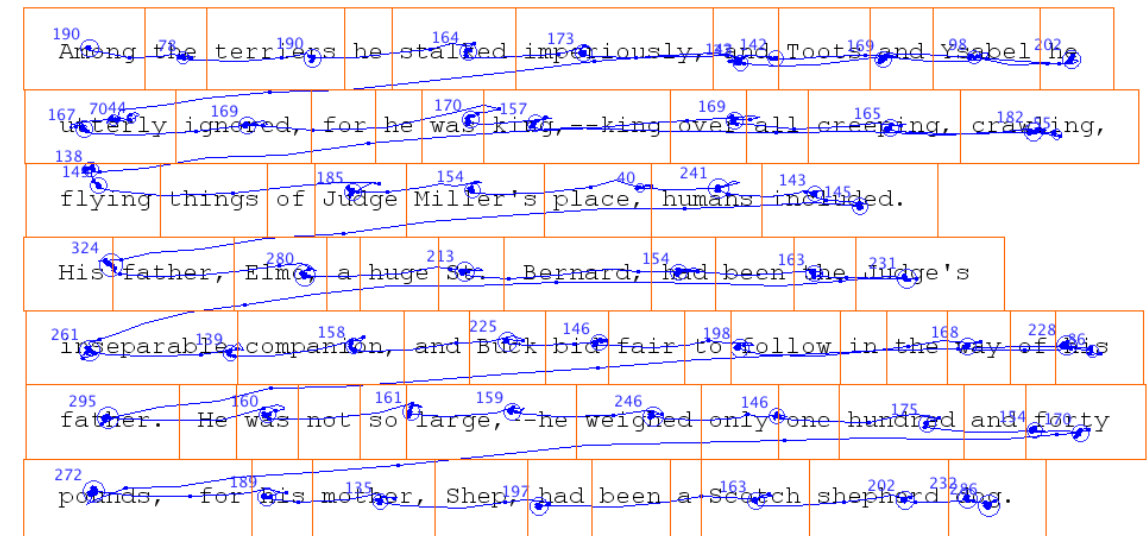 Among the terriers he stalked imperiously, and Toots and Ysabel he
utterly ignored, for he was king,--king over all creeping, crawling,
flying things of Judge Miller's place, humans included.
His father, Elmo, a huge St. Bernard, had been the Judge's
inseparable companion, and Buck bid fair to follow in the way of his
father.  He was not so large,--he weighed only one hundred and forty
pounds,  for his mother, Shep, had been a Scotch shepherd dog.
190 78 190 164 173 142 142 169 98 202
167 169 170 157 169 165 182
138 185 154 40 241 143 145
324 280 213 154 163 231
261 139 158 225 146 198 168 228 86
295 160 161 159 246 146 175 154 170
272 189 135 197 163 202 232